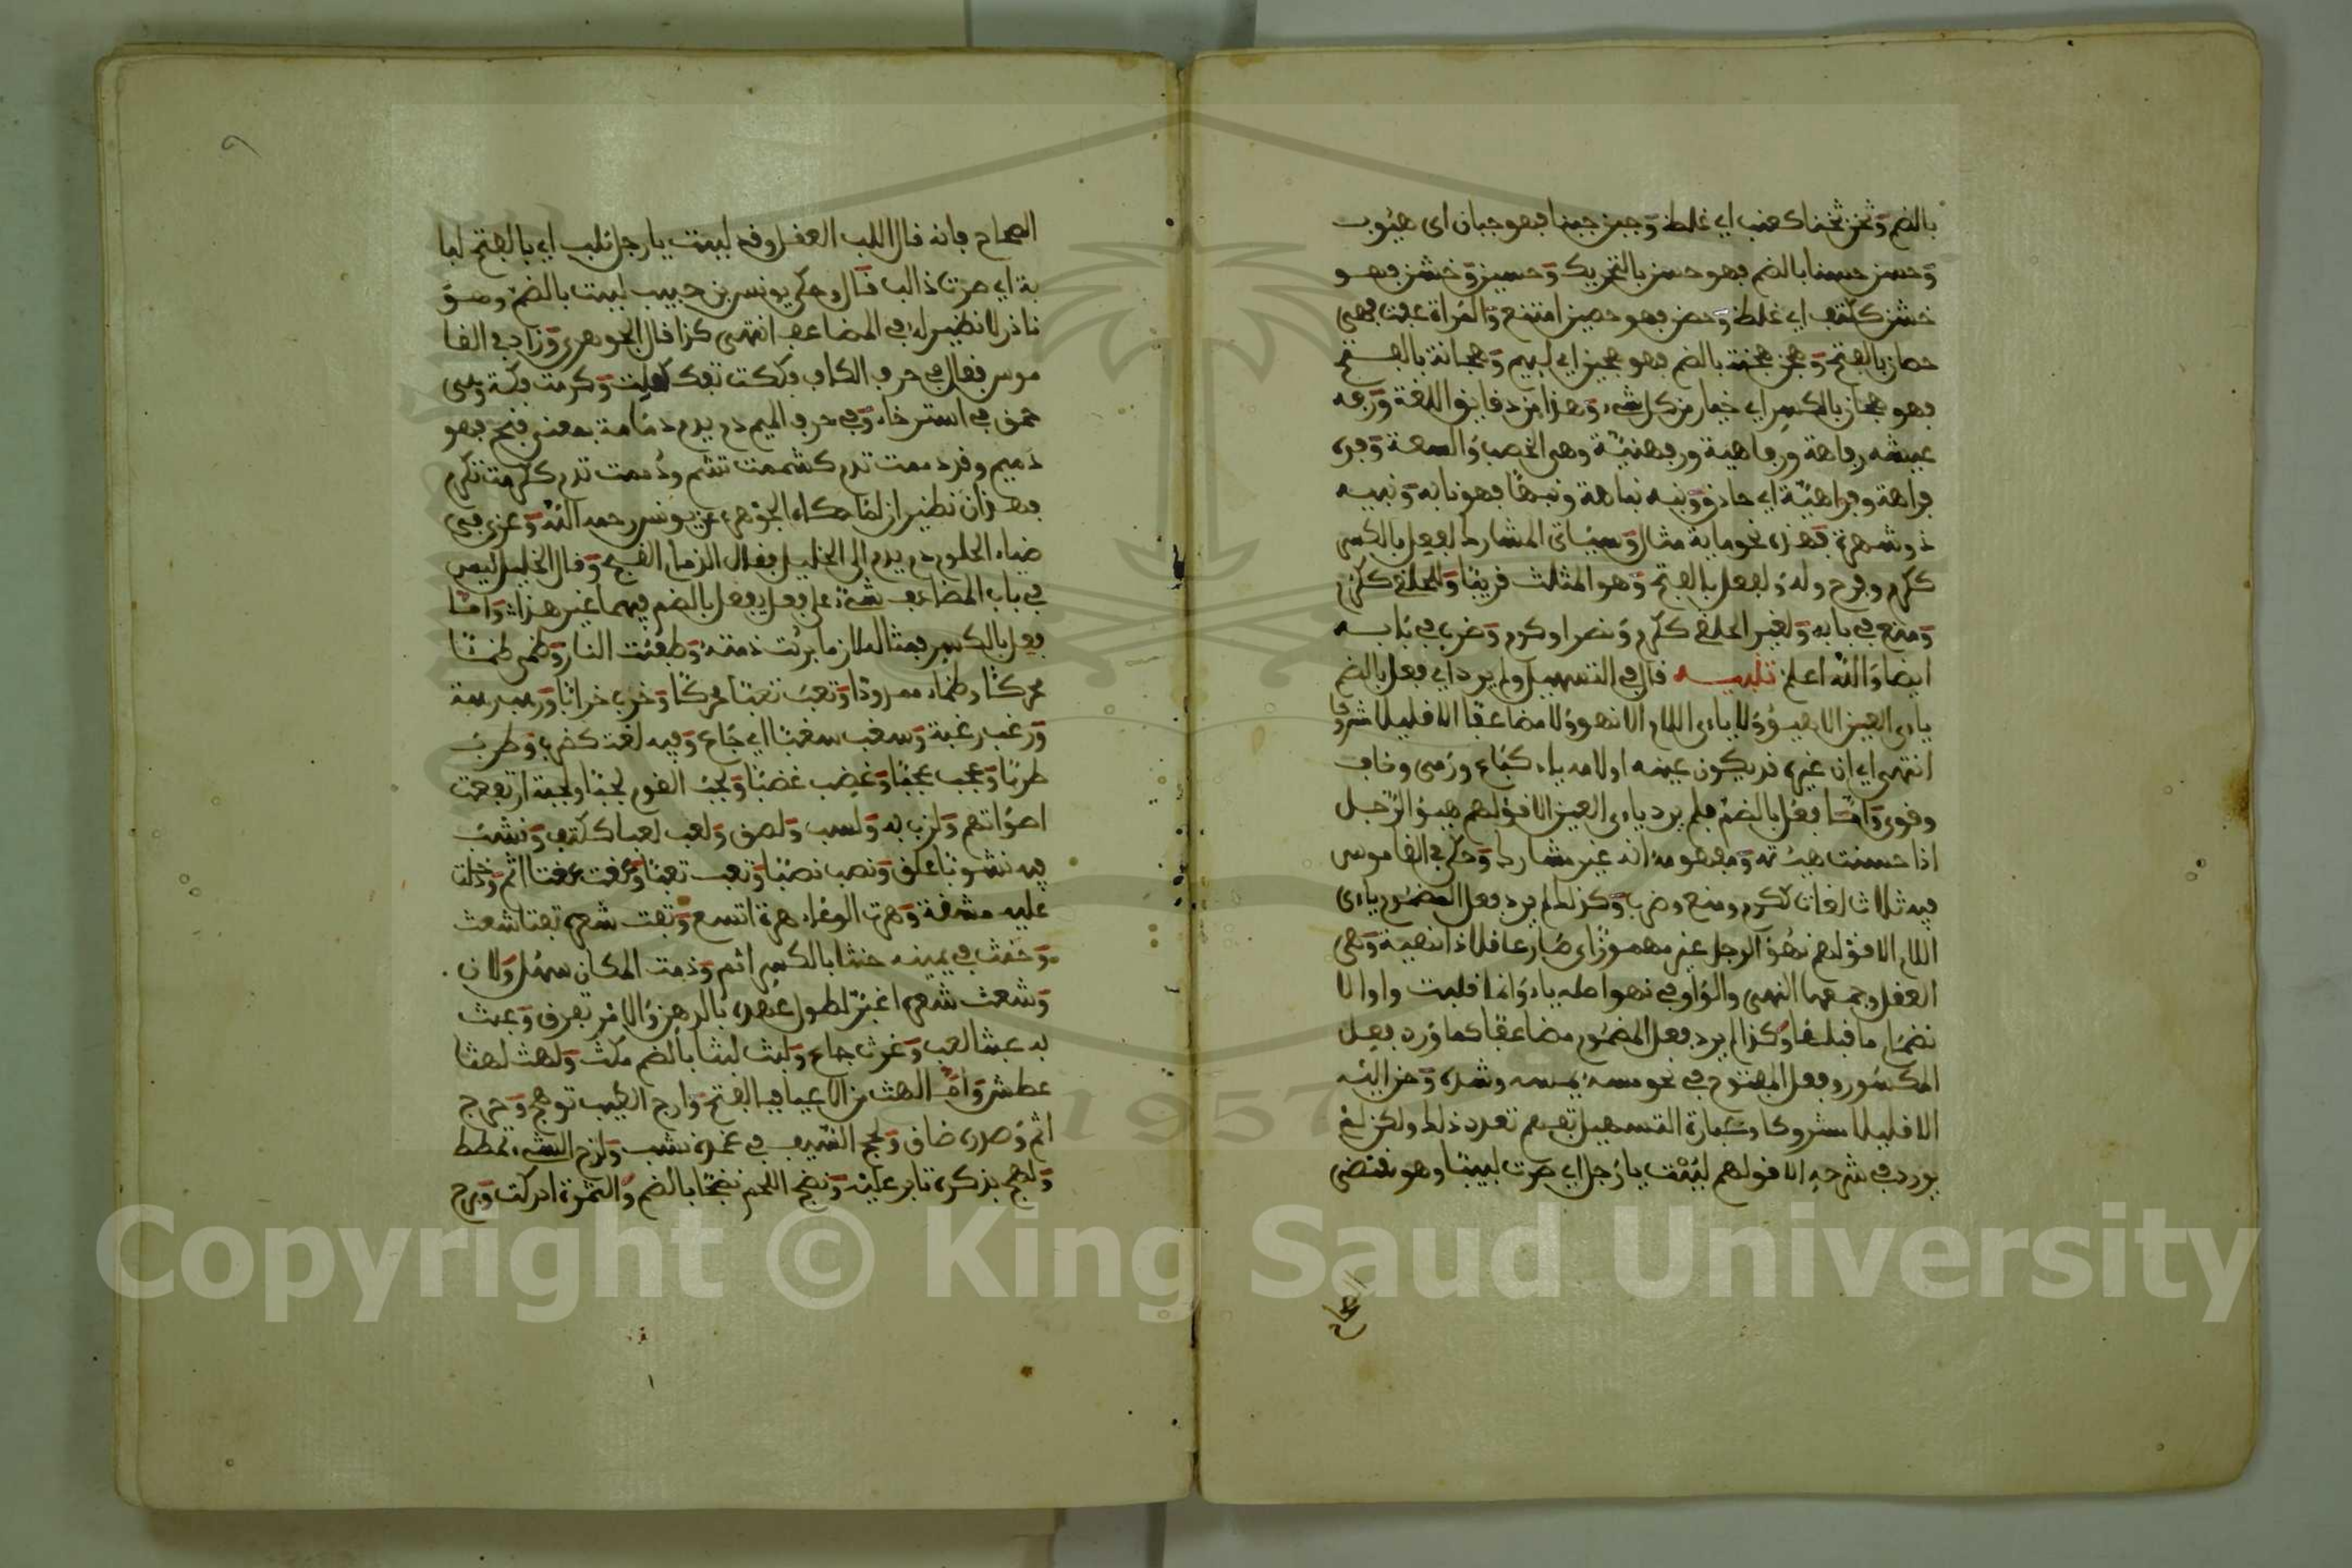 بالضم وثخن ثخنا كعنب اي غلظ وجبن جبنا فهو جبان اي هيوب
وحسن حسنا بالضم فهو حسن بالتحريك وحسين وخشن فهو
خشن ككتف اي غلظ وحصن فهو حصين امتنع والمراة عفت فهي
حصان بالفتح وهجن هجنة بالضم فهو هجين اي ليم وهجانة بالفتح
فهو هجان بالكسر اي خيار من كل شيء وهذا من دقايق اللغة ورفه
عيشه رفاهة ورفاهية ورفهنية وهي الخصب والسعة وفره
فراهة وفراهية اي حاذق ونبه نباهة ونبها فهو نابه ونبيه
ذو شهرة فهذه نحو ماية مثال وسياتي المشارك لفعل بالكسر
ككرم وفرح وله ولفعل بالفتح وهو المثلث قريبا والحلقي ككرم
ومنع في بابه ولغير الحلقي ككرم ونصر او كرم وضرب في بابه
ايضا والله اعلم تنبيه قال في التسهيل ولم يرد اي فعل بالضم
ياءى العين الا هيؤ ولا ياءى اللام الا نهو ولا مضاعفا الا قليلا مشروكا
انتهى اي ان غيره قد يكون عينه او لامه ياء كباع ورمى وخاف
وقوى واما فعل بالضم فلم يرد ياءى العين الا قولهم هيؤ الرجل
اذا حسنت هيئته ومفهومه انه غير مشارك وحكى في القاموس
فيه ثلاث لغات ككرم ومنع وضرب وكذلك لم يرد فعل المضموم ياءى
اللام الا قولهم نهو الرجل غير مهموز اي صار عاقلا ذا نهية وهي
العقل وجمعها النهى والواو في نهو اصله ياء وانما قلبت واوا لا
نضمام ما قبلها وكذا لم يرد فعل المضموم مضاعفا كما ورد فعل
المكسور وفعل المفتوح في نحو مسه يمسه وشده وحن اليه
الا قليلا مشروكا وعبارة التسهيل تفهم تعدد ذلك ولكن لم
يورد في شرحه الا قولهم لببت يا رجل اي صرت لبيبا وهو مقتضى
الصحاح
الصحاح فانه قال اللب العقل وقد لببت يا رجل تلب اي بالفتح لبا
بة اي صرت ذا لب قال وحكى يونس بن حبيب لببت بالضم وهو
نادر لا نظير له في المضاعف انتهى كذا قال الجوهري وزاد في القا
موس فقال في حرف الكاف فككت تفك كعلمت وكرمت فكة وهي
حمق في استرخاء وفي حرف الميم دم يدم دمامة بمعنى قبح فهو
دميم وقد دممت تدم كشممت تشم ودممت تدم ككرمت تكرم
فهذان نظيران لما حكاه الجوهري عن يونس رحمه الله وعزى في
ضياء الحلوم دم يدم الى الخليل فقال الدمام القبح وقال الخليل ليس
في باب المضاعف شيء على فعل يفعل بالضم فيهما غير هذا واما
فعل بالكسر فمثال اللازم ما برئت ذمته وطفئت النار وظمى ظمئا
محركا وظماء ممدودا وتعب تعبا محركا وخرب خرابا ورهب رهبة
ورغب رغبة وسغب سغبا اي جاع وفيه لغة كضرب وطرب
طربا وعجب عجبا وغضب غضبا ولجب القوم لجبا ولجبة ارتفعت
اصواتهم ولزب به ولسب ولصق ولعب لعبا ككتف ونشب
فيه نشوبا علق ونصب نصبا وتعب تعبا وعنت عنتا اثم ودخلت
عليه مشقة وهرت الوعاء هرة اتسع وتفث شعره تفثا شعث
وحنث في يمينه حنثا بالكسر اثم ودمث المكان سهل ولان
وشعث شعره اغبر لطول عهده بالدهن والامر تفرق وعبث
به عبثا لعب وغرث جاع ولبث لبثا بالضم مكث ولهث لهثا
عطش واما لهث من الاعياء فبالفتح وارج الطيب توهج وحرج
اثم وصدره ضاق ولحج السيف في غمده نشب ولزج الشيء تمطط
ولهج بذكره ثابر عليه ونضج اللحم نضجا بالضم والثمرة ادركت وبرح